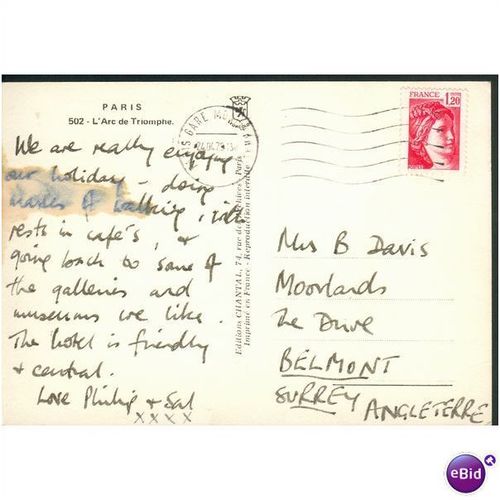 PARIS
502 - L'Arc de Triomphe.
We are really enjoying
our holiday - doing
walking, with
rests in café's, &
going back to some of
the galleries and
museums we like.
The hotel is friendly
& central.
Love Philip & Sal
xxxx
PARIS GARE MONTPARNASSE
Editions CHANTAL, 74, rue des Archives - Paris
Imprimé en France - Reproduction interdite
FRANCE 1,20
POSTES
Mrs B Davis
Moorlands
The Drive
BELMONT
SURREY
ANGLETERRE
eBid